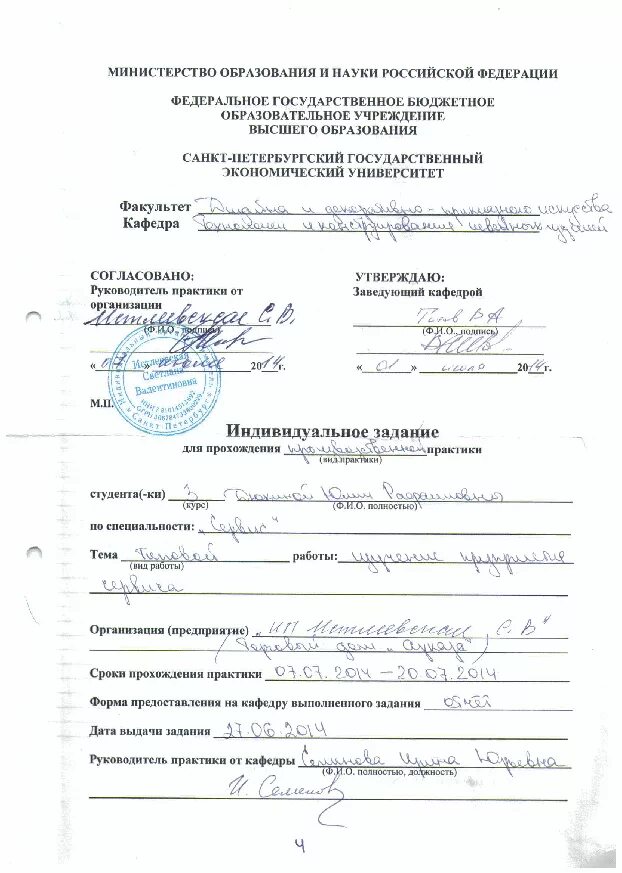 МИНИСТЕРСТВО ОБРАЗОВАНИЯ И НАУКИ РОССИЙСКОЙ ФЕДЕРАЦИИ
ФЕДЕРАЛЬНОЕ ГОСУДАРСТВЕННОЕ БЮДЖЕТНОЕ
ОБРАЗОВАТЕЛЬНОЕ УЧРЕЖДЕНИЕ
ВЫСШЕГО ОБРАЗОВАНИЯ
САНКТ-ПЕТЕРБУРГСКИЙ ГОСУДАРСТВЕННЫЙ
ЭКОНОМИЧЕСКИЙ УНИВЕРСИТЕТ
Факультет Дизайна и декоративно-прикладного искусства
Кафедра Технологии и конструирования швейных изделий
СОГЛАСОВАНО:
Руководитель практики от
организации
Истлевская С.В.
(Ф.И.О., подпись)
« 07 » июля 2014г.
М.П.
Истлевская
Светлана
Валентиновна
УТВЕРЖДАЮ:
Заведующий кафедрой
В А
(Ф.И.О., подпись)
« 01 » июля 2014г.
Индивидуальное задание
для прохождения производственной практики
(вид практики)
студента(-ки) 3 Юлии
(курс) (Ф.И.О. полностью)
по специальности: „Сервис"
Тема Типовой работы: изучение предприятия
(вид работы)
сервиса
Организация (предприятие) „ИП Истлевская С.В"
(Торговый дом
Сроки прохождения практики 07.07.2014 – 20.07.2014
Форма предоставления на кафедру выполненного задания отчёт
Дата выдачи задания 27.06.2014
Руководитель практики от кафедры Семёнова Ирина Юрьевна
(Ф.И.О. полностью, должность)
И. Семенов
4